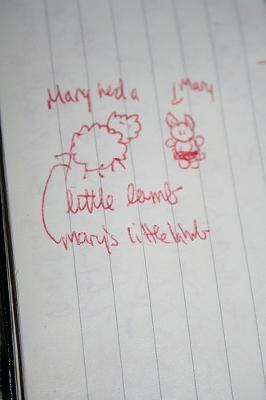 Mary had a
Mary
little lamb
Mary's little lamb